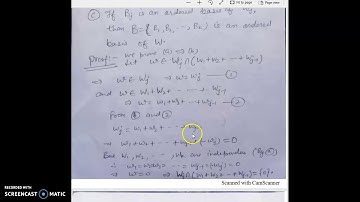 (c) If Bj is an ordered basis of Wj,
then B = {B1, B2, ..., Bk} is an ordered
basis of W.
Proof:- We prove (a) ⇔ (b)
Let w ∈ Wj ∩ (W1 + W2 + ... + Wj-1)
⇒ w ∈ Wj ⇒ w = wj — (1)
and w ∈ W1 + W2 + ... + Wj-1
⇒ w = w1 + w2 + ... + wj-1 — (2)
From (1) and (2)
wj = w1 + w2 + ... + wj-1
⇒ w1 + w2 + ... + wj-1 + (-wj) = 0
But W1, W2, ..., Wk are independent (By (a))
∴ w1 = w2 = ... = wj-1 = (-wj) = 0
⇒ w = 0 ⇒ Wj ∩ (W1 + W2 + ... + Wj-1) = {0}.
Scanned with CamScanner
RECORDED WITH
SCREENCAST-O-MATIC